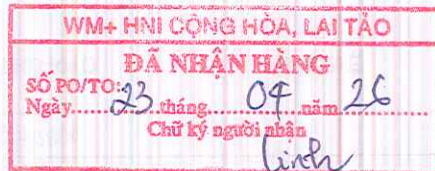 WM+ HNI CỘNG HÒA, LAI TẢO
ĐÃ NHẬN HÀNG
SỐ PO/TO:
Ngày.....23.tháng.....04.....năm..26.....
Chữ ký người nhận
Linh